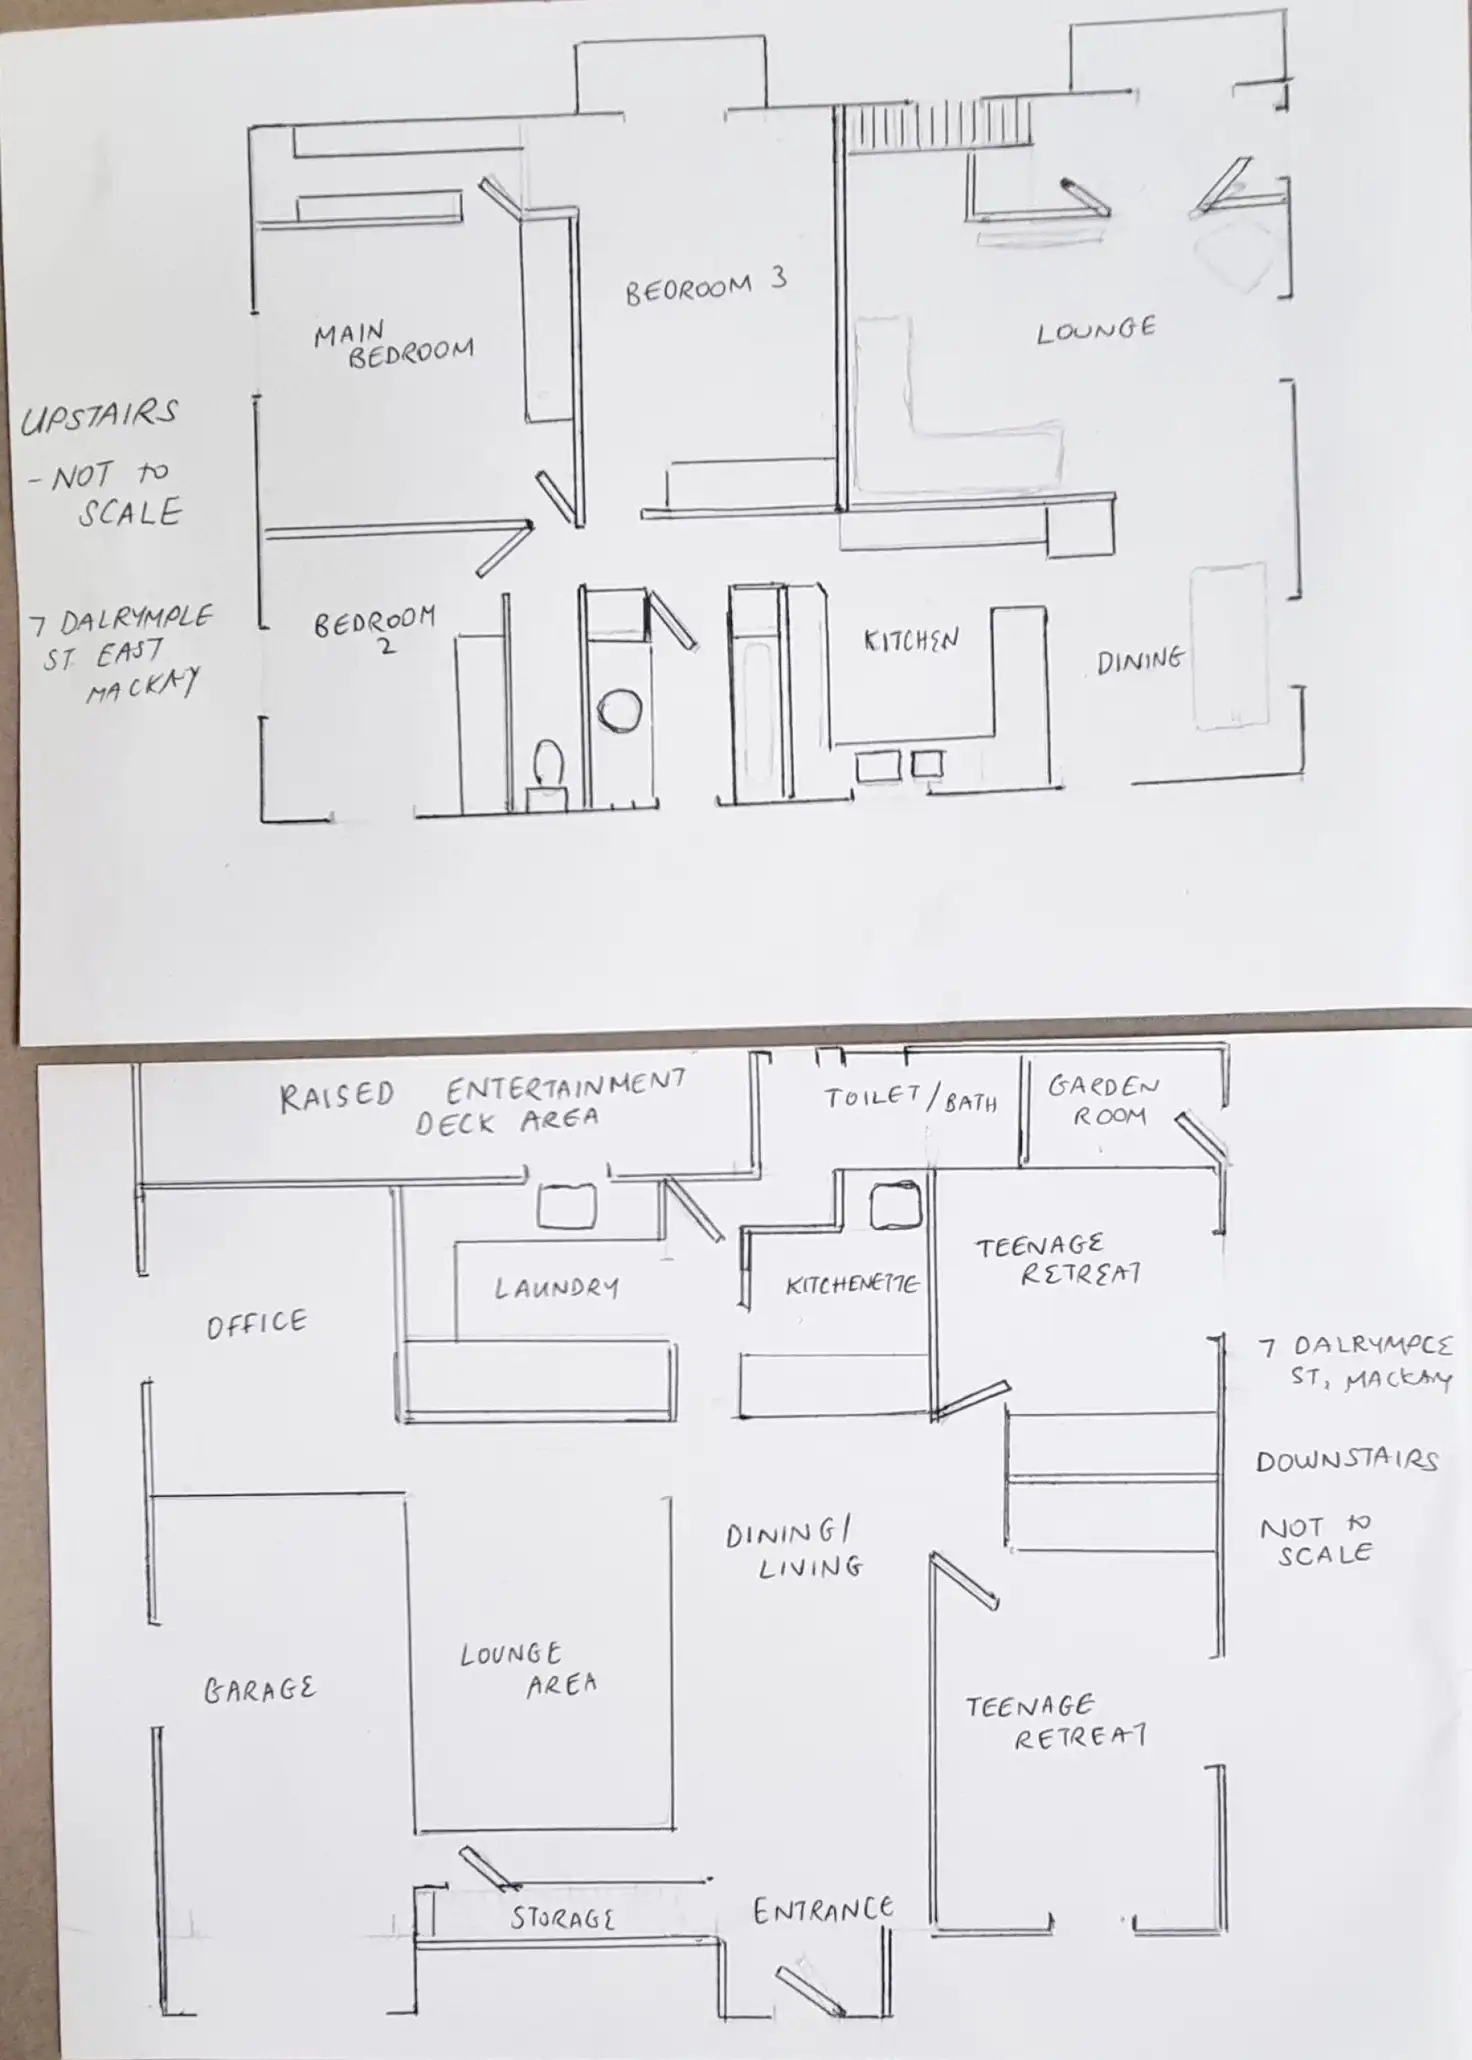 BEDROOM 3
MAIN
BEDROOM
LOUNGE
UPSTAIRS
- NOT to
SCALE
7 DALRYMPLE
ST. EAST
MACKAY
BEDROOM
2
KITCHEN
DINING
RAISED ENTERTAINMENT
DECK AREA
TOILET/BATH
GARDEN
ROOM
OFFICE
LAUNDRY
KITCHENETTE
TEENAGE
RETREAT
7 DALRYMPLE
ST, MACKAY
DOWNSTAIRS
NOT to
SCALE
DINING/
LIVING
GARAGE
LOUNGE
AREA
TEENAGE
RETREAT
STORAGE
ENTRANCE